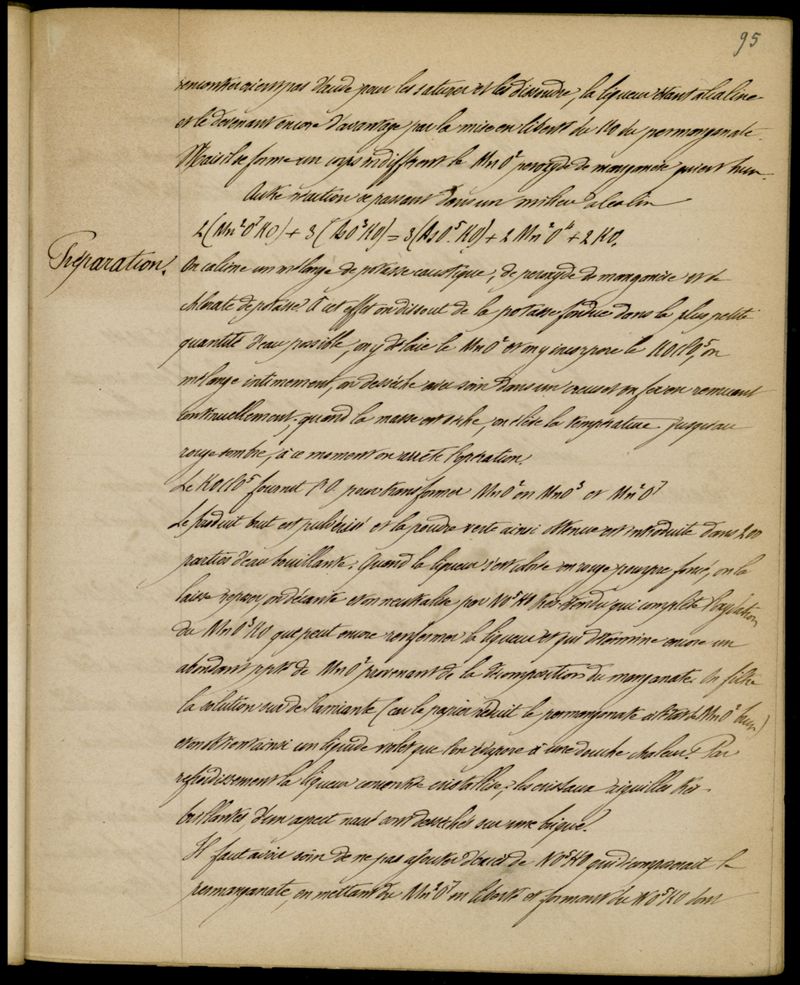 95
rencontrer d'acide pour les saturer et les dissoudre, la liqueur étant alcaline
et le devenant encore d'avantage par la mise en liberté du KO du permanganate.
Mais il se forme un corps indifférent le MnO² peroxyde de manganèse qui est brun.
Autre réaction se passant dans un milieu alcalin
2(Mn²O⁷KO) + 3(AsO³KO) = 3(AsO⁵KO) + 2Mn²O⁴ + 2KO.
Préparation.
On calcine un mélange de potasse caustique, de peroxyde de manganèse et de
chlorate de potasse. A cet effet on dissout de la potasse fondue dans la plus petite
quantité d'eau possible, on y délaie le MnO² et on y incorpore le KOClO⁵, on
mélange intimement, on dessèche avec soin dans un creuset en fer en remuant
continuellement; quand la masse est sèche, on élève la température jusqu'au
rouge sombre, à ce moment on arrête l'opération.
Le KOClO⁵ fournit l'O. pour transformer MnO² en MnO³ et Mn²O⁷
Le produit brut est pulvérisé et la poudre verte ainsi obtenue est introduite dans 200
parties d'eau bouillante. Quand la liqueur s'est colorée en rouge pourpre foncé, on la
laisse reposer, on décante et on neutralise par NO⁵HO très étendu qui complète l'oxydation
du MnO³KO que peut encore renfermer la liqueur et qui détermine encore un
abondant ppté de MnO² provenant de la décomposition du manganate. On filtre
la solution sur de l'amiante (car le papier réduit le permanganate à l'état de MnO² brun)
et on obtient ainsi un liquide violet que l'on évapore à une douce chaleur. Par
refroidissement la liqueur concentrée cristallise; les cristaux aiguillés très
brillantes, d'un aspect nacré sont desséchés sur une brique.
Il faut avoir soin de ne pas ajouter d'excès de NO⁵HO qui décomposerait le
permanganate, en mettant du Mn²O⁷ en liberté et formant du NO⁵KO dont